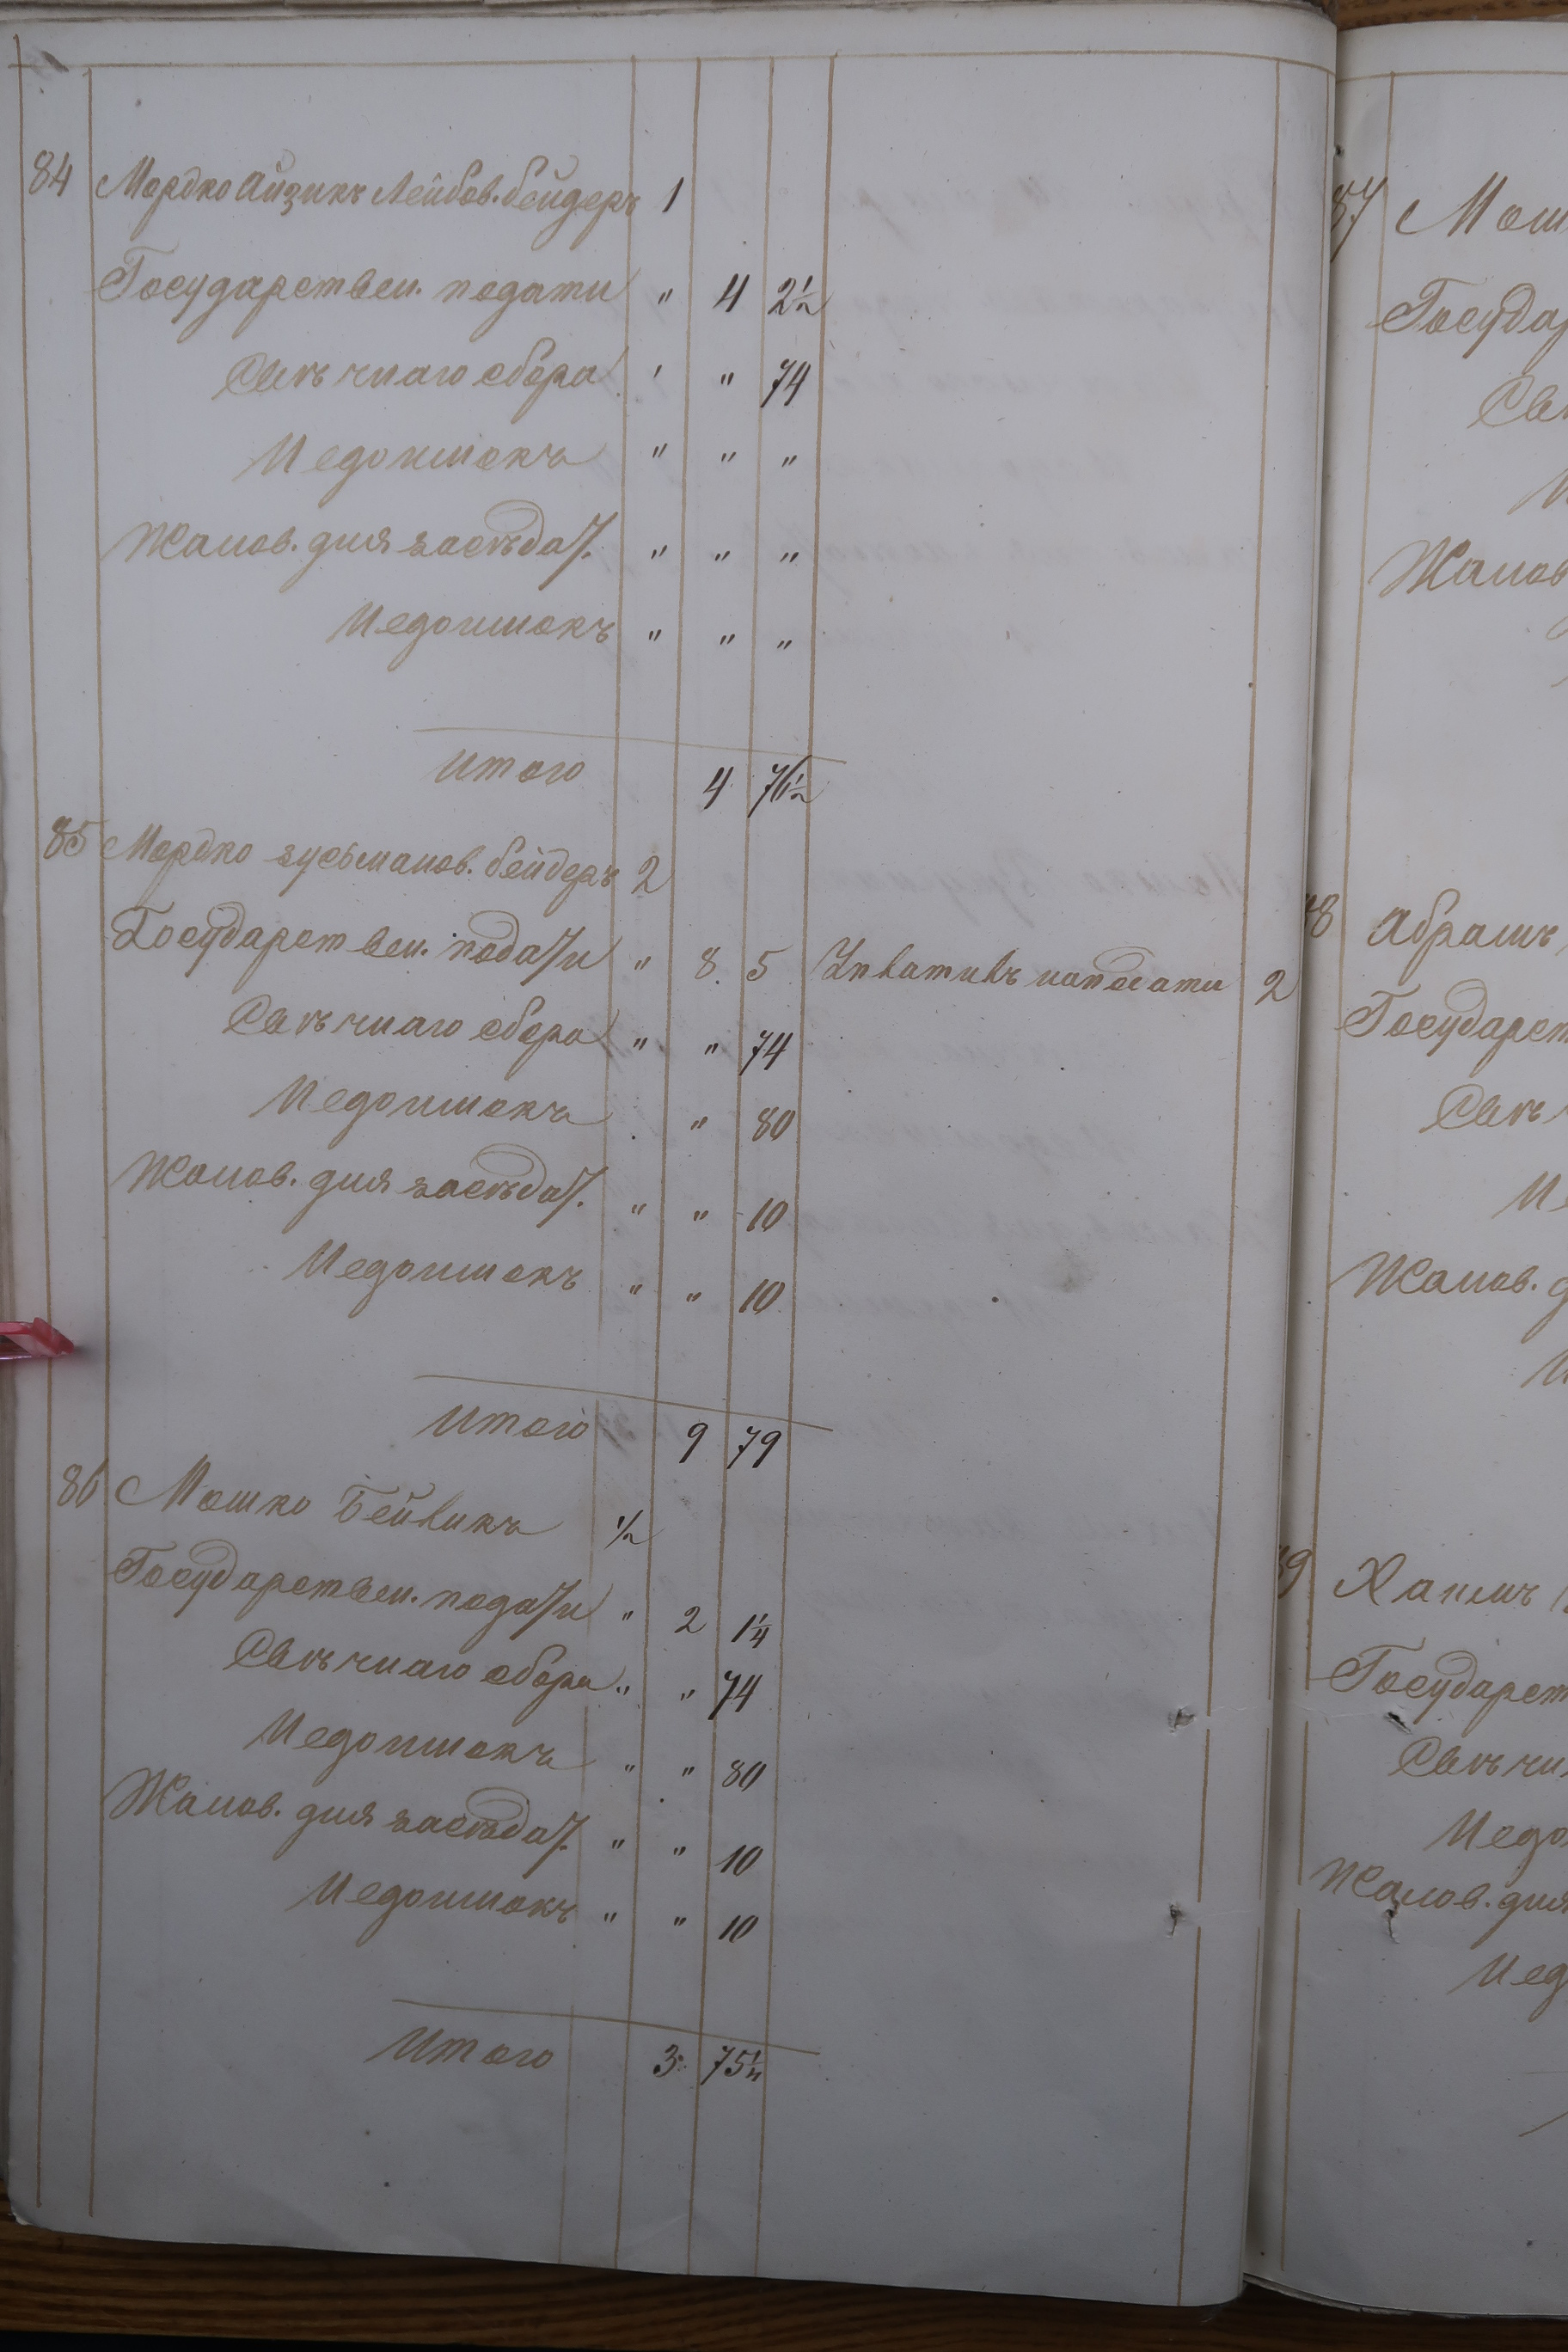 84 Мордко Айзикъ Лейбов. Бейдеръ 1
Государствен. подати " 4 2½
Свѣчнаго сбора " " 74
Недоимокъ " " "
Жалов. для засѣдат. " " "
Недоимокъ " " "
Итого 4 76½
85 Мордко Зусьманов. Бейдеръ 2
Государствен. подати " 8 5 2
Свѣчнаго сбора " " 74
Недоимокъ " 80
Жалов. для засѣдат. " " 10
Недоимокъ " " 10
Итого 9 79
86 Мошко ½
Государствен. подати " 2 1¼
Свѣчнаго сбора " " 74
Недоимокъ " " 80
Жалов. для засѣдат. " " 10
Недоимокъ " " 10
Итого 3 75¼
87 Мош
Государ
Св
Жалов
Абрамъ
Государст
Свѣ
Не
Жалов. д
Государст
Свѣчн
Недо
Жалов. для
Нед